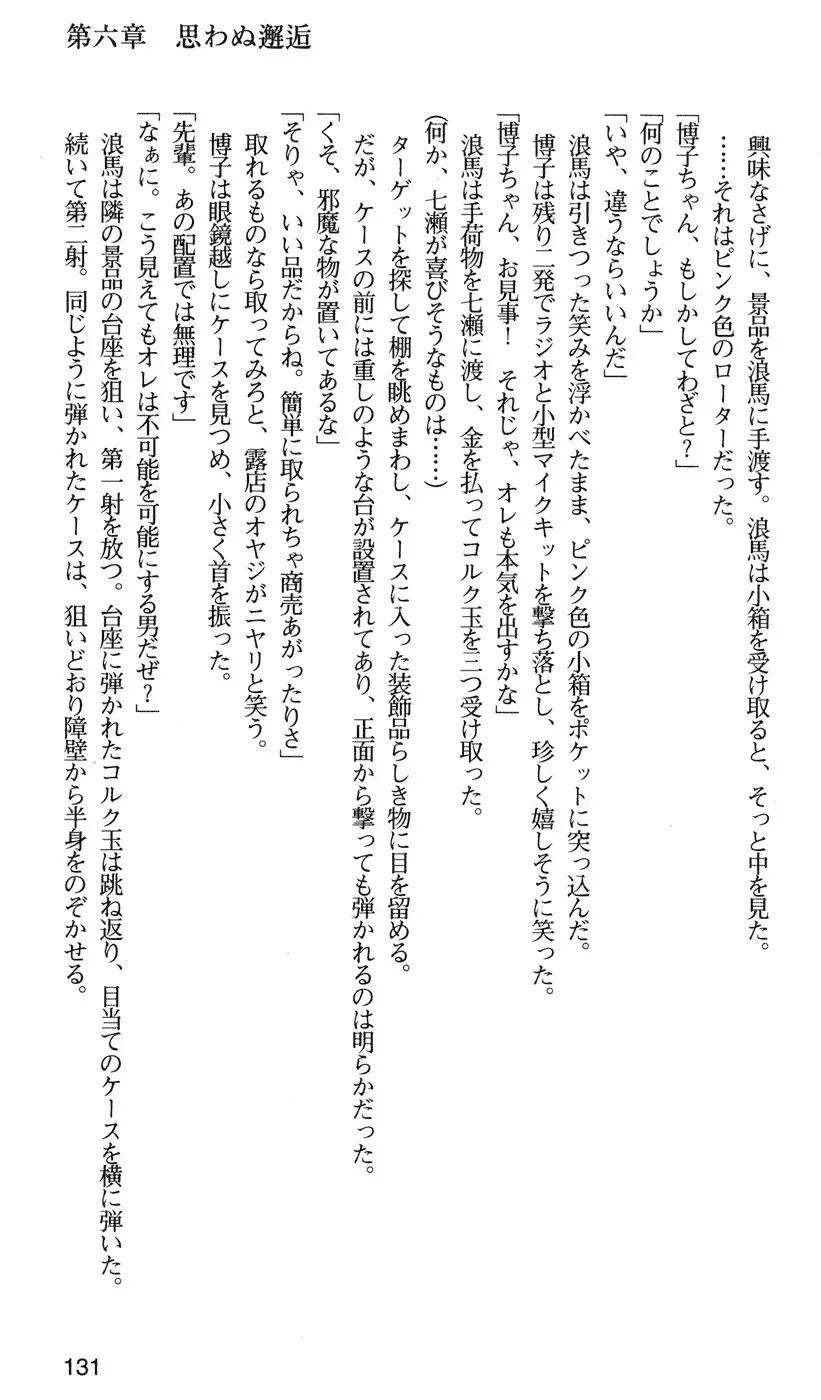 第六章　思わぬ邂逅
　興味なさげに、景品を浪馬に手渡す。浪馬は小箱を受け取ると、そっと中を見た。
　……それはピンク色のローターだった。
「博子ちゃん、もしかしてわざと？」
「何のことでしょうか」
「いや、違うならいいんだ」
　浪馬は引きつった笑みを浮かべたまま、ピンク色の小箱をポケットに突っ込んだ。
　博子は残り二発でラジオと小型マイクキットを撃ち落とし、珍しく嬉しそうに笑った。
「博子ちゃん、お見事！　それじゃ、オレも本気を出すかな」
　浪馬は手荷物を七瀬に渡し、金を払ってコルク玉を三つ受け取った。
(何か、七瀬が喜びそうなものは……)
　ターゲットを探して棚を眺めまわし、ケースに入った装飾品らしき物に目を留める。
　だが、ケースの前には重しのような台が設置されてあり、正面から撃っても弾かれるのは明らかだった。
「くそ、邪魔な物が置いてあるな」
「そりゃ、いい品だからね。簡単に取られちゃ商売あがったりさ」
　取れるものなら取ってみろと、露店のオヤジがニヤリと笑う。
　博子は眼鏡越しにケースを見つめ、小さく首を振った。
「先輩。あの配置では無理です」
「なぁに。こう見えてもオレは不可能を可能にする男だぜ？」
　浪馬は隣の景品の台座を狙い、第一射を放つ。台座に弾かれたコルク玉は跳ね返り、目当てのケースを横に弾いた。
　続いて第二射。同じように弾かれたケースは、狙いどおり障壁から半身をのぞかせる。
131